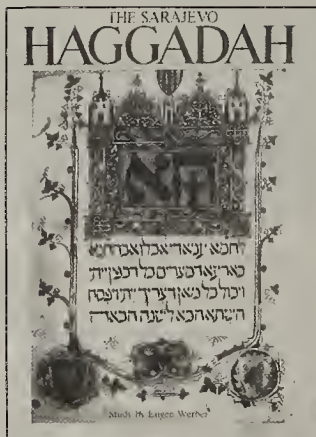 THE SARAJEVO
HAGGADAH
הא
לחמא עניא די אכלו אבהתנא
בארעא דמצרים כל דכפין ייתי
ויכול כל מאן דצריך ייתי
השתא הכא לשנה הבאה
Study by Eugen Werber